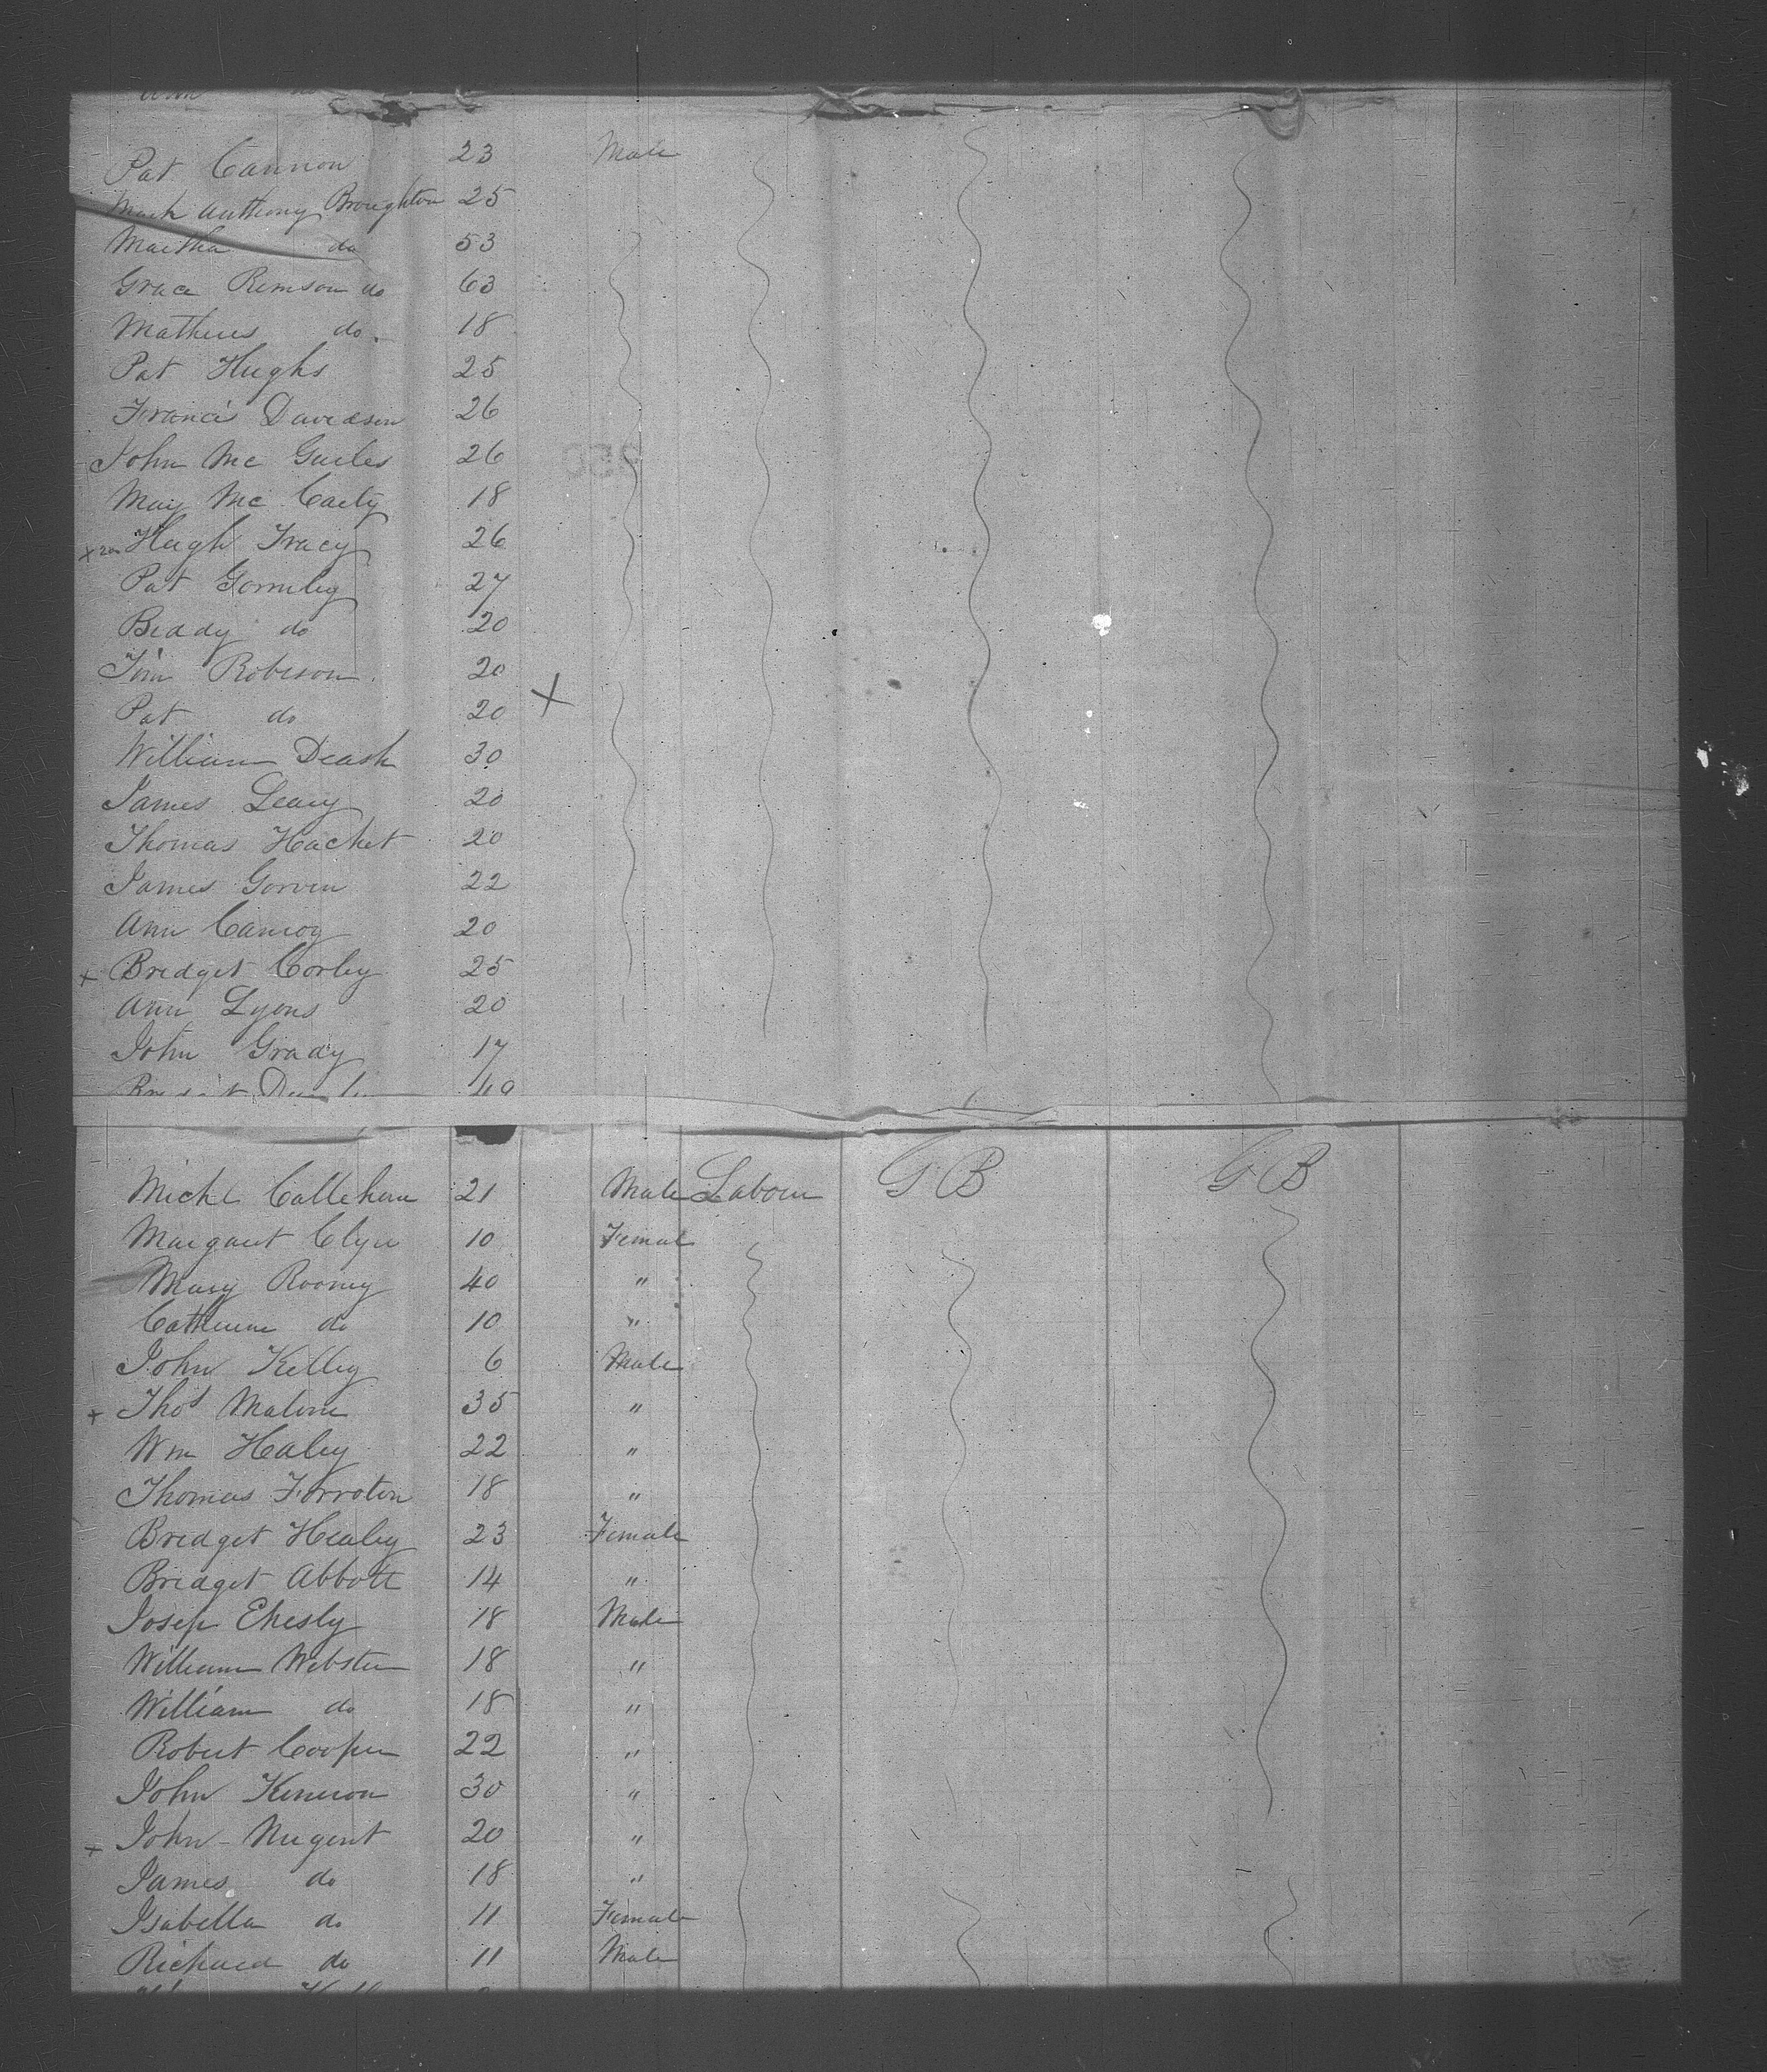 Pat Cannon 23 Male
Mark Anthony Broughton 25
Martha do 53
Grace Remson do 63
Mathews do 18
Pat Hughs 25
Francis Davidson 26
John Mc Guiles 26
May Mc Carty 18
x Hugh Tracy 26
Pat Gormley 27
Biddy do 20
Jim Robison 20
Pat do 20 X
William Deash 30
James Leary 20
Thomas Hacket 20
James Gorven 22
Ann Canroy 20
x Bridget Corley 25
Ann Lyons 20
John Grady 17
40
Michl Callehan 21 Male Labour G B G B
Margaret Clyne 10 Female
Mary Rooney 40 "
Catherine do 10 "
John Kelley 6 Male
x Thos Malone 35 "
Wm Haley 22 "
Thomas Forroten 18 "
Bridget Healey 23 Female
Bridget Abbott 14 "
Josep Ehesly 18 Male
William Webster 18 "
William do 18 "
Robert Cooper 22 "
John Kenieon 30 "
x John Nugent 20 "
James do 18 "
Isabella do 11 Female
Richard do 11 Male